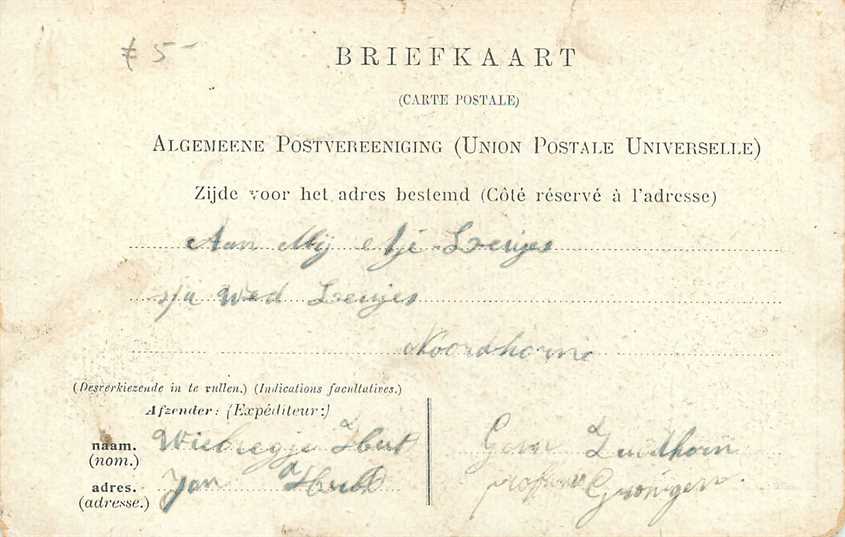 £ 5-
BRIEFKAART
(CARTE POSTALE)
ALGEMEENE POSTVEREENIGING (UNION POSTALE UNIVERSELLE)
Zijde voor het adres bestemd (Côté réservé à l'adresse)
Aan Mij
Wed
Noordhorn
(Desverkiezende in te vullen.) (Indications facultatives.)
Afzender: (Expéditeur:)
naam. Wiebregje
(nom.)
adres. Jan
(adresse.)
Gem Zuidhorn
Groningen.